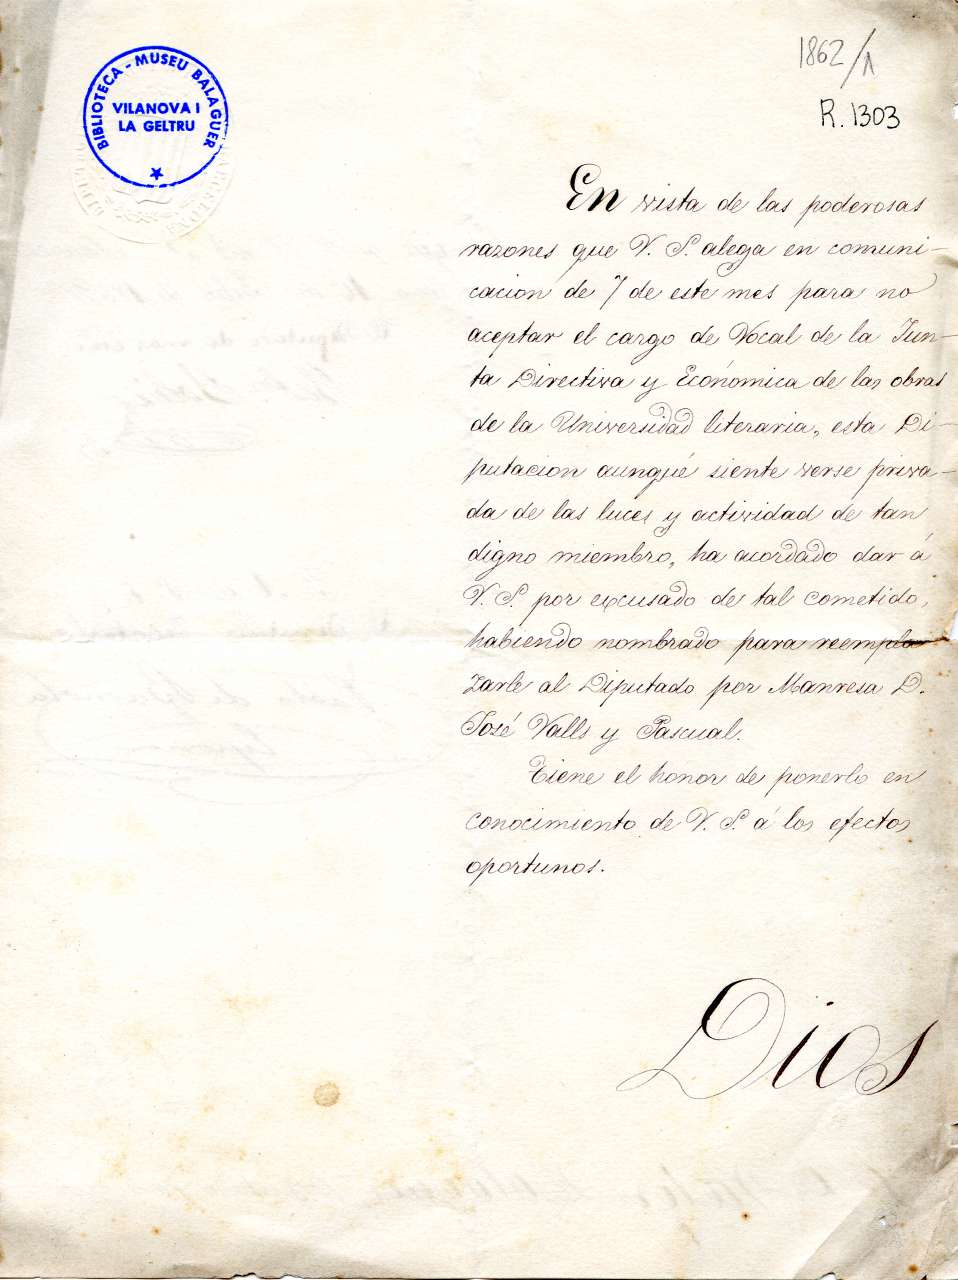 1862/1
R. 1303
BIBLIOTECA - MUSEU BALAGUER
VILANOVA I
LA GELTRU
En vista de las poderosas
razones que V. S. alega en comuni-
cacion de 7 de este mes para no
aceptar el cargo de Vocal de la Jun-
ta Directiva y Económica de las obras
de la Universidad literaria, esta Di-
putacion aunqué siente verse priva-
da de las luces y actividad de tan
digno miembro, ha acordado dar á
V. S. por excusado de tal cometido,
habiendo nombrado para reempla
zarle al Diputado por Manresa D.
José Valls y Pascual.
Tiene el honor de ponerlo en
conocimiento de V. S. á los efectos
oportunos.
Dios